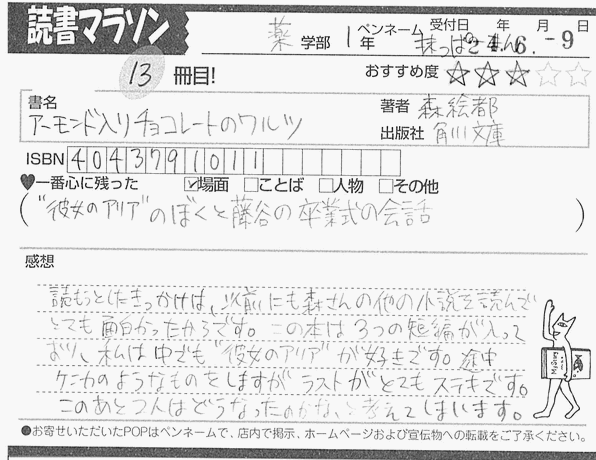 読書マラソン
薬 学部 1 年 ペンネーム 受付日 年 月 日
24.6.-9
13 冊目! おすすめ度 ☆☆☆☆☆
書名 アーモンド入りチョコレートのワルツ
著者 森絵都
出版社 角川文庫
ISBN 4043791011
♥一番心に残った ☑場面 □ことば □人物 □その他
("彼女のアリア"のぼくと藤谷の卒業式の会話)
感想
読もうとしたきっかけは、以前にも森さんの他の小説を読んで
とても面白かったからです。この本は3つの短編が入って
おり、私は中でも"彼女のアリア"が好きです。途中
ケンカのようなものをしますが、ラストがとてもステキです。
このあと2人はどうなったのかな、と考えてしまいます。
●お寄せいただいたPOPはペンネームで、店内で掲示、ホームページおよび宣伝物への転載をご了承ください。